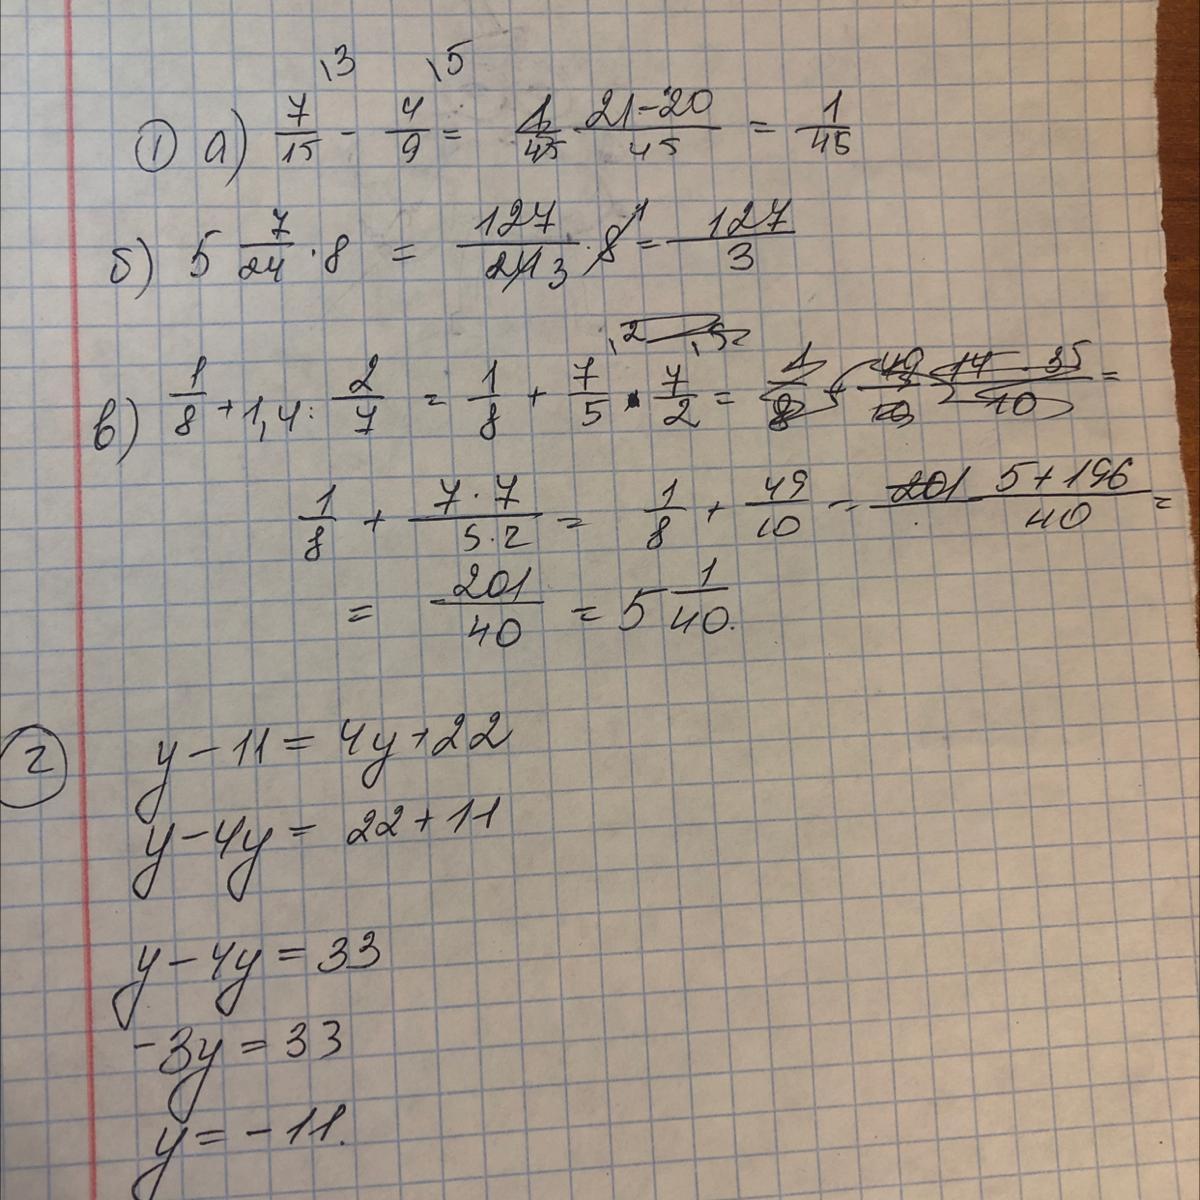 ,3 ,5
① а) 7/15 - 4/9 = 21-20/45 = 1/45
б) 5 7/24 · 8 = 127/24 3 · 8 1 = 127/3
,2 ,5
в) 1/8 + 1,4 : 2/7 = 1/8 + 7/5 · 7/2 = 1/8 + 49/10 14 35/10 =
1/8 + 7·7/5·2 = 1/8 + 49/10 = 201 5+196/40 =
= 201/40 = 5 1/40.
② y - 11 = 4y + 22
y - 4y = 22 + 11
y - 4y = 33
-3y = 33
y = -11.